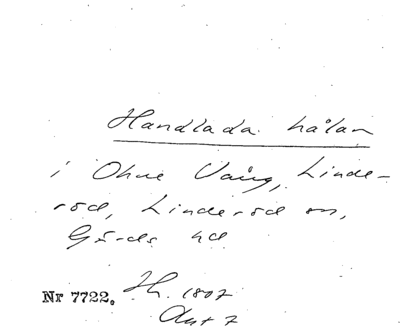 Handlada hålan
i Ohne Vång, Linde-
röd, Linderöd sn,
Gärds hd
Nr 7722. Jh. 1807
Akt 7